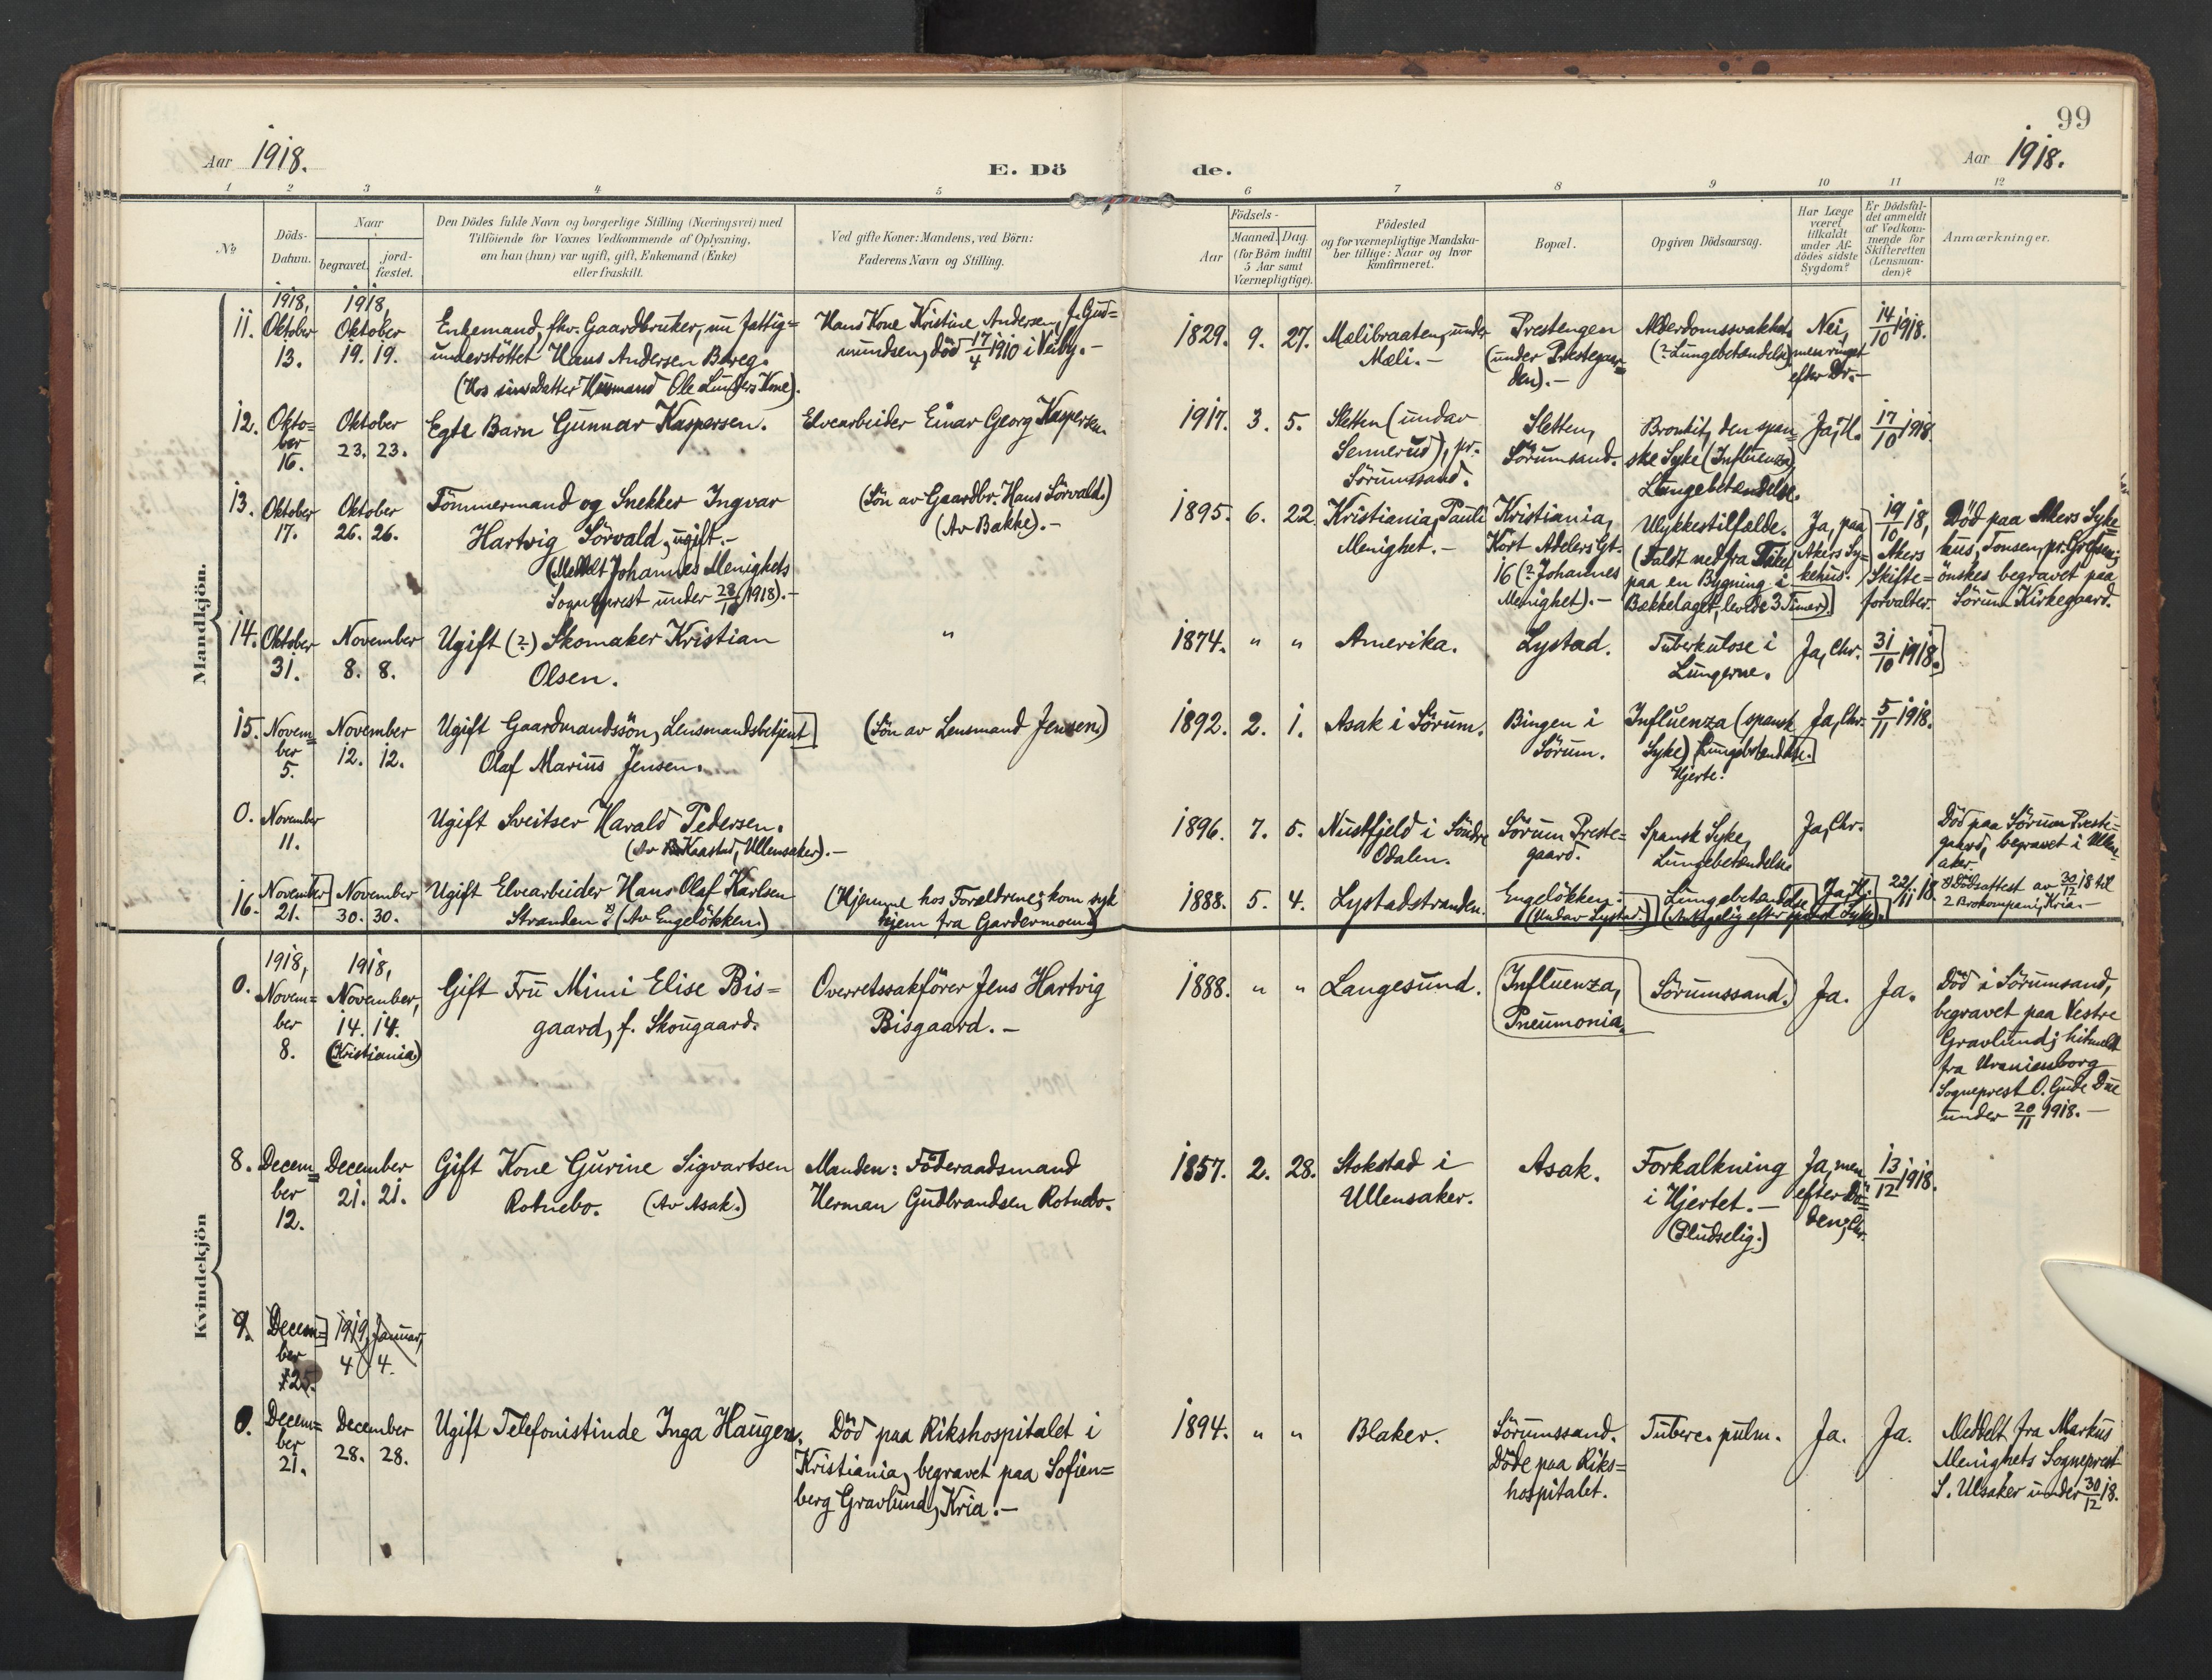 99
Aar 1918. E. Dö de. Aar 1918.
1 2 3 4 5 6 7 8 9 10 11 12
No
Döds-
Datum.
Naar
begravet.
jord-
fæstet.
Den Dödes fulde Navn og borgerlige Stilling (Næringsvei) med
Tilföiende for Voxnes Vedkommende af Oplysning,
om han (hun) var ugift, gift, Enkemand (Enke)
eller fraskilt.
Ved gifte Koner: Mandens, ved Börn:
Faderens Navn og Stilling.
Födsels-
Aar
Maaned. Dag.
(for Börn indtil
5 Aar samt
Værnepligtige).
Födested
og for værnepligtige Mandska-
ber tillige: Naar og hvor
konfirmeret.
Bopæl.
Opgiven Dödsaarsag.
Har Læge
været
tilkaldt
under Af-
dödes sidste
Sygdom?
Er Dödsfal-
det anmeldt
af Vedkom-
mende for
Skifteretten
(Lensman-
den)?
Anmærkninger.
Mandkjön.
11.
1918,
Oktober
13.
1918,
Oktober
19. 19.
Enkemand, fhv. Gaardbruker, nu fattig=
understöttet Hans Andersen Bareg.
(Hos sin Datter Husmand Ole Kone).
Hans Kone Kristine Andersen, f. Gud=
mundsen, död 17/4 1910 i Viiby.-
1829. 9. 27.
Mælibraaten, under
Mæli.-
Prestengen
(under Prestegaar=
den).-
Alderdomssvakhet
(? Lungebetændelse)
Nei,
men ringet
efter Dr.-
14/10 1918.
12.
Okto=
ber
16.
Oktober
23. 23.
Egte Barn Gunnar Kaspersen.
Elvearbeider Einar Georg Kaspersen
1917. 3. 5.
Sletten (under
Sennerud), pr.
Sörumsand.
Sletten,
Sörumsand.
Bronkit, den span=
ske Syke (Influenza)
Lungebetændelse.
Ja, H.
17/10 1918
13.
Oktober
17.
Oktober
26. 26.
Tömmermand og Snekker Ingvar
Hartvig Sörvald, ugift.-
(Meddelt Johannes Menighets
Sogneprest under 28/10 1918).-
(Sön av Gaardbr. Hans Sörvald.)
(Av Bakke).-
1895. 6. 22
Kristiania, Pauli
Menighet.-
Kristiania,
Kort Adelers Gt.
16 (? Johannes
Menighet).-
Ulykkestilfælde.
(Faldt ned fra Taket
paa en Bygning i
Bækkelaget, levde 3 Timer)
Ja, paa
Akers Sy=
kehus.
19/10 18,
Akers
Skifte=
forvalter.
Död paa Akers Syke=
hus, Tonsen, pr. Grefsen;
önskes begravet paa
Sörum Kirkegaard.
14.
Oktober
31.
November
8. 8.
Ugift (?) Skomaker Kristian
Olsen.
"
1874. " "
Amerika.
Lystad.
Tuberkulose i
Lungerne.
Ja, Chr.
31/10 1918.
15.
Novem=
ber
5.
November
12. 12.
Ugift Gaardmandssön, Lensmandsbetjent
Olaf Marius Jensen.
(Sön av Lensmand Jensen.)
1892. 2. 1.
Asak i Sörum.
Bingen i
Sörum.
Influenza (spansk
Syke) Lungebetændelse.
Hjerte.
Ja, Chr.
5/11 1918.
0.
November
11.
Ugift Sveitser Harald Pedersen.
(Av Kaastad, Ullensaker).-
1896. 7. 5.
Nustfjeld i Söndre
Odalen.
Sörum Preste=
gaard.
Spansk Syke,
Lungebetændelse
Ja, Chr.
Död paa Sörum Preste=
gaard, begravet i Ullen=
aker.
16.
November
21.
November
30. 30.
Ugift Elvearbeider Hans Olaf Karlsen
Stranden x) (Av Engelökken)
(Hjemme hos Foreldrene; kom syk
hjem fra Gardermoen)
1888. 5. 4.
Lystadstranden.
Engelökken.
(Under Lystad.)
Lungebetændelse
(Antagelig efter spansk Syke).
Ja, H.
22/11 18.
x) Dödsattest av 30/12 18 til
2 Brokompani, Kria.-
Kvindekjön
0.
1918,
Novem=
ber
8.
1918,
November,
14. 14.
(Kristiania)
Gift Fru Mimi Elise Bis=
gaard, f. Skougaard.
Overretssakförer Jens Hartvig
Bisgaard.-
1888. " "
Langesund.
Influenza,
Pneumonia.
Sörumssand.
Ja. Ja.
Död i Sörumsand,
begravet paa Vestre
Gravlund; hitmeldt
fra Uranienborg
Sogneprest O. Gude Due
under 20/11 1918.-
8.
Decem=
ber
12.
December
21. 21.
Gift Kone Gurine Sigvartsen
Rotnebo. (Av Asak.)
Manden: Föderaadsmand
Herman Gudbrandsen Rotnebo.
1857. 2. 28.
Stokstad i
Ullensaker.
Asak.
Forkalkning
i Hjertet.-
(Pludselig.)
Ja, men
efter Dö=
den, Chr.
13/12 1918.
9.
Decem=
ber
25.
1919, Januar,
4. 4.
0.
Decem=
ber
21.
December
28. 28.
Ugift Telefonistinde Inga Haugen.
Död paa Rikshospitalet i
Kristiania, begravet paa Sofien=
berg Gravlund, Kria.-
1894. " "
Blaker.
Sörumssand.
Döde paa Riks=
hospitalet.
Tuberc. pulm.
Ja. Ja.
Meddelt fra Markus
Menighets Sogneprest
S. Ulsaker under 30/12 18.